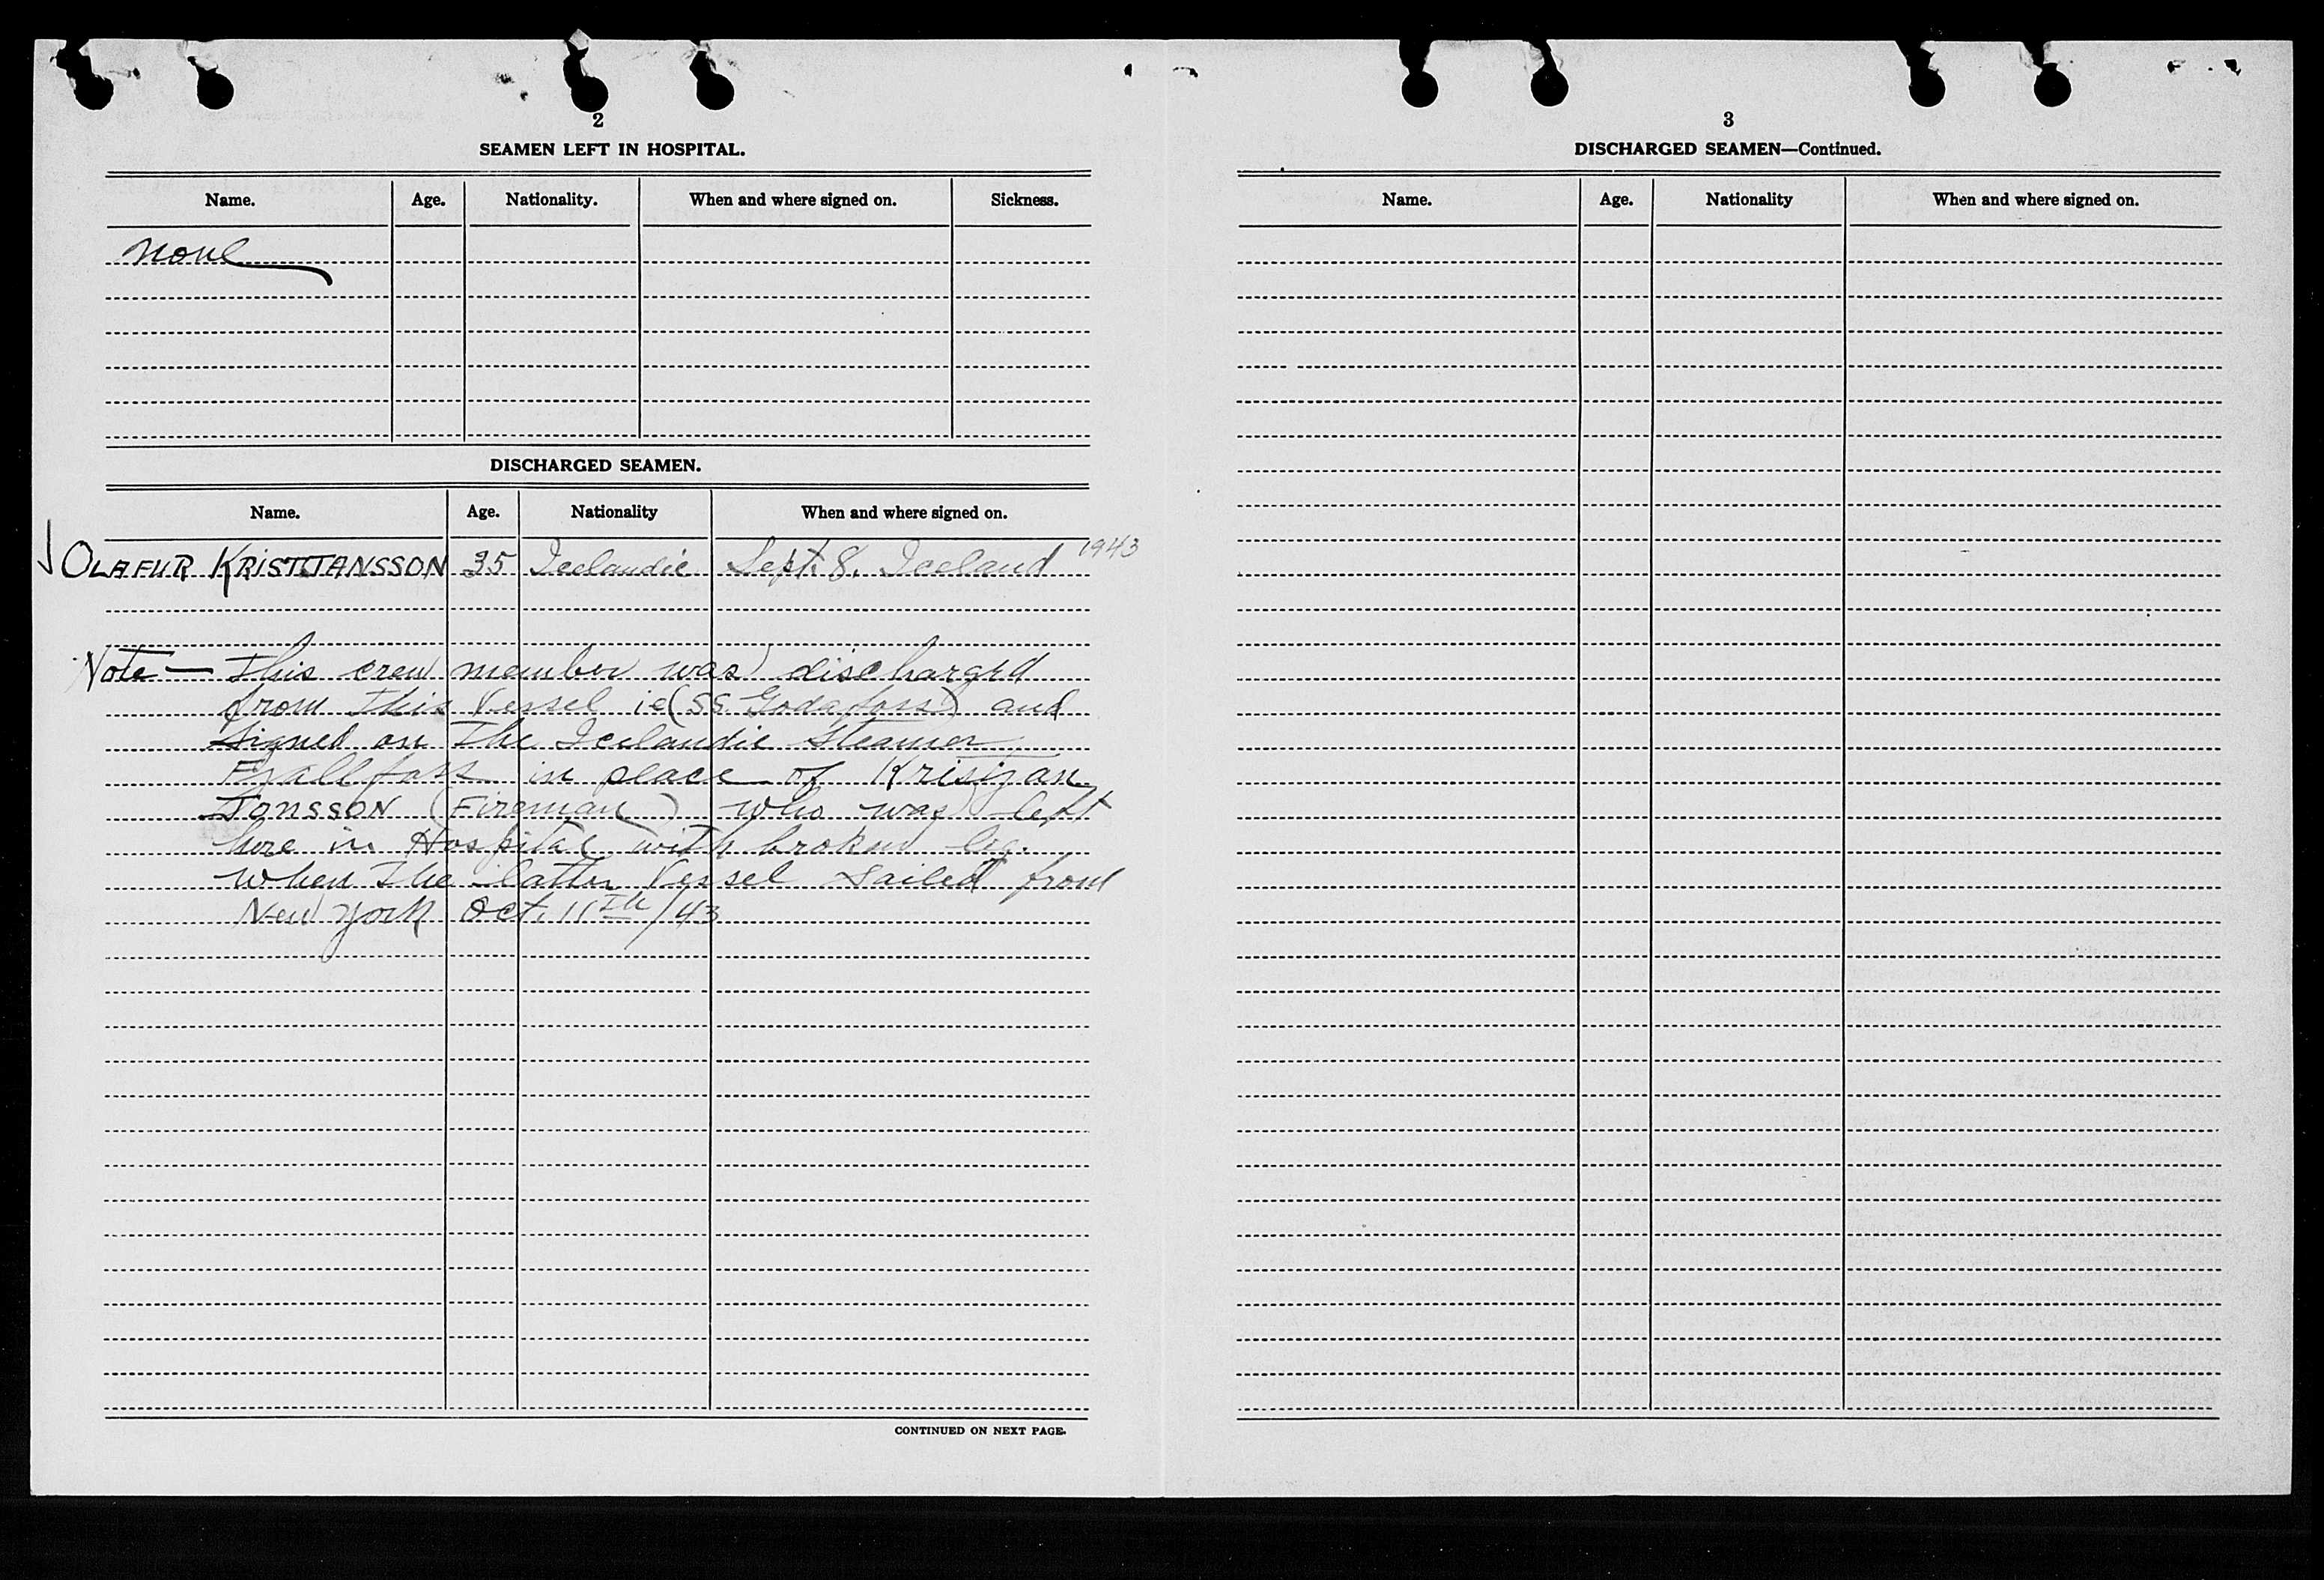 2
SEAMEN LEFT IN HOSPITAL.
Name. Age. Nationality. When and where signed on. Sickness.
None
DISCHARGED SEAMEN.
Name. Age. Nationality When and where signed on.
OLAFUR KRISTTJANSSON 35 Icelandic Sept. 8. Iceland 1943
Note — This crew member was discharged
from this Vessel ie (SS Godafoss) and
signed on The Icelandic Steamer
Fjallfoss in place of Kristjan
JONSSON (Fireman) who was left
here in Hospital with broken leg.
when The latter Vessel sailed from
New York Oct. 11th/43
CONTINUED ON NEXT PAGE.
3
DISCHARGED SEAMEN—Continued.
Name. Age. Nationality When and where signed on.